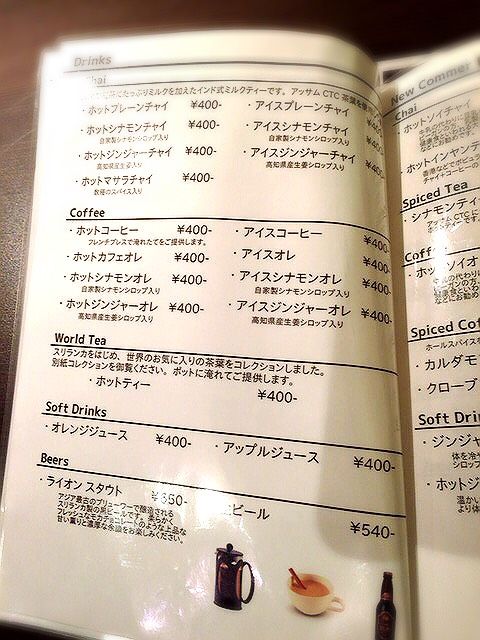 Drinks
Chai
にたっぷりミルクを加えたインド式ミルクティーです。アッサム CTC 茶葉を
・ホットプレーンチャイ ¥400- ・アイスプレーンチャイ ¥400-
・ホットシナモンチャイ ¥400- ・アイスシナモンチャイ ¥400-
自家製シナモンシロップ入り 自家製シナモンシロップ入り
・ホットジンジャーチャイ ¥400- ・アイスジンジャーチャイ ¥400-
高知県産生姜入り 高知県産生姜シロップ入り
・ホットマサラチャイ ¥400-
数種のスパイス入り
Coffee
・ホットコーヒー ¥400- ・アイスコーヒー ¥400-
フレンチプレスで淹れたてをご提供します。
・ホットカフェオレ ¥400- ・アイスオレ ¥400-
・ホットシナモンオレ ¥400- ・アイスシナモンオレ ¥400-
自家製シナモンシロップ入り 自家製シナモンシロップ入り
・ホットジンジャーオレ ¥400- ・アイスジンジャーオレ ¥400-
高知県産生姜シロップ入り 高知県産生姜シロップ入り
World Tea
スリランカをはじめ、世界のお気に入りの茶葉をコレクションしました。
別紙コレクションを御覧ください。ポットに淹れてご提供します。
・ホットティー ¥400-
Soft Drinks
・オレンジジュース ¥400- ・アップルジュース ¥400-
Beers
・ライオン スタウト ¥650- ビール ¥540-
アジア最古のブリュワーで醸造される
スリランカ製の黒ビールです。柔らかく
フレッシュなモカチョコレートのような上品な
甘い薫りと濃厚な余韻をお楽しみください。
New Commer
Chai
・ホットソイチャイ
・ホットインヤンテ
Spiced Tea
・シナモンティ
アッサム CTC に
Coffe
・ホットソイオ
Spiced Cof
ホールスパイスを
・カルダモ
・クローブ
Soft Dri
・ジンジャ
体を冷や
シロップ
・ホットジ
温かい
より体